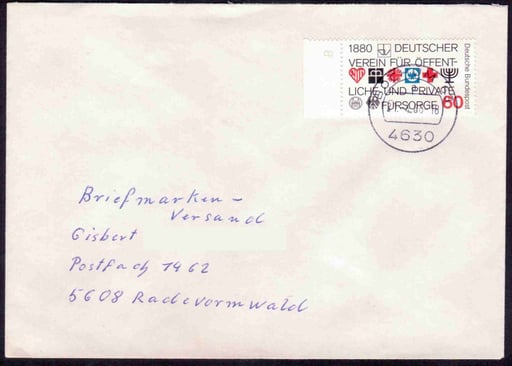 1880 DEUTSCHER
VEREIN FÜR ÖFFENT-
LICHE UND PRIVATE
FÜRSORGE 60
Deutsche Bundespost
4630
Briefmarken-
Versand
Gisbert
Postfach 1462
5608 Radevormwald